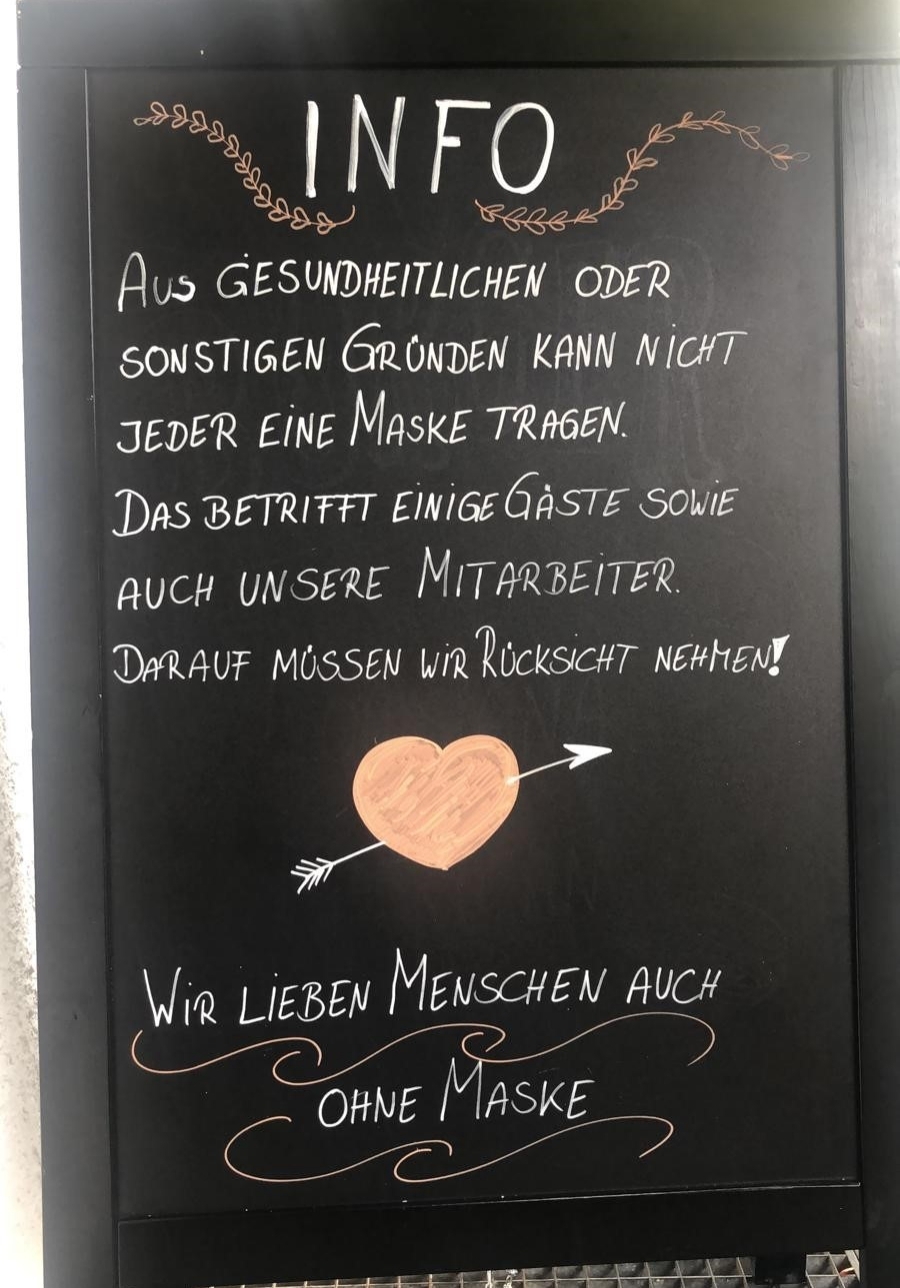 INFO
AUS GESUNDHEITLICHEN ODER
SONSTIGEN GRÜNDEN KANN NICHT
JEDER EINE MASKE TRAGEN.
DAS BETRIFFT EINIGE GÄSTE SOWIE
AUCH UNSERE MITARBEITER.
DARAUF MÜSSEN WIR RÜCKSICHT NEHMEN!
WIR LIEBEN MENSCHEN AUCH
OHNE MASKE